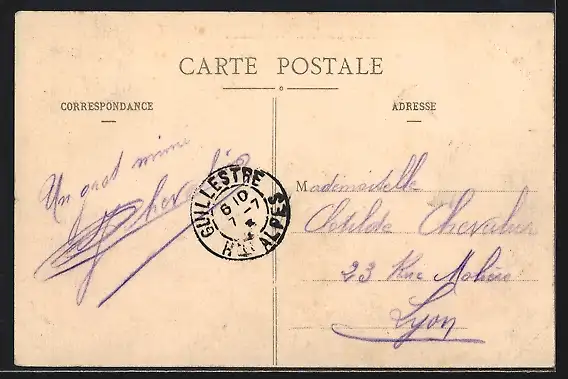 CARTE POSTALE
CORRESPONDANCE
ADRESSE
Un gros mimi
Chevalier
GUILLESTRE
6 ID
7 -7
HTES ALPES
Mademoiselle
Clotilde Chevalier
23 Rue Molière
Lyon